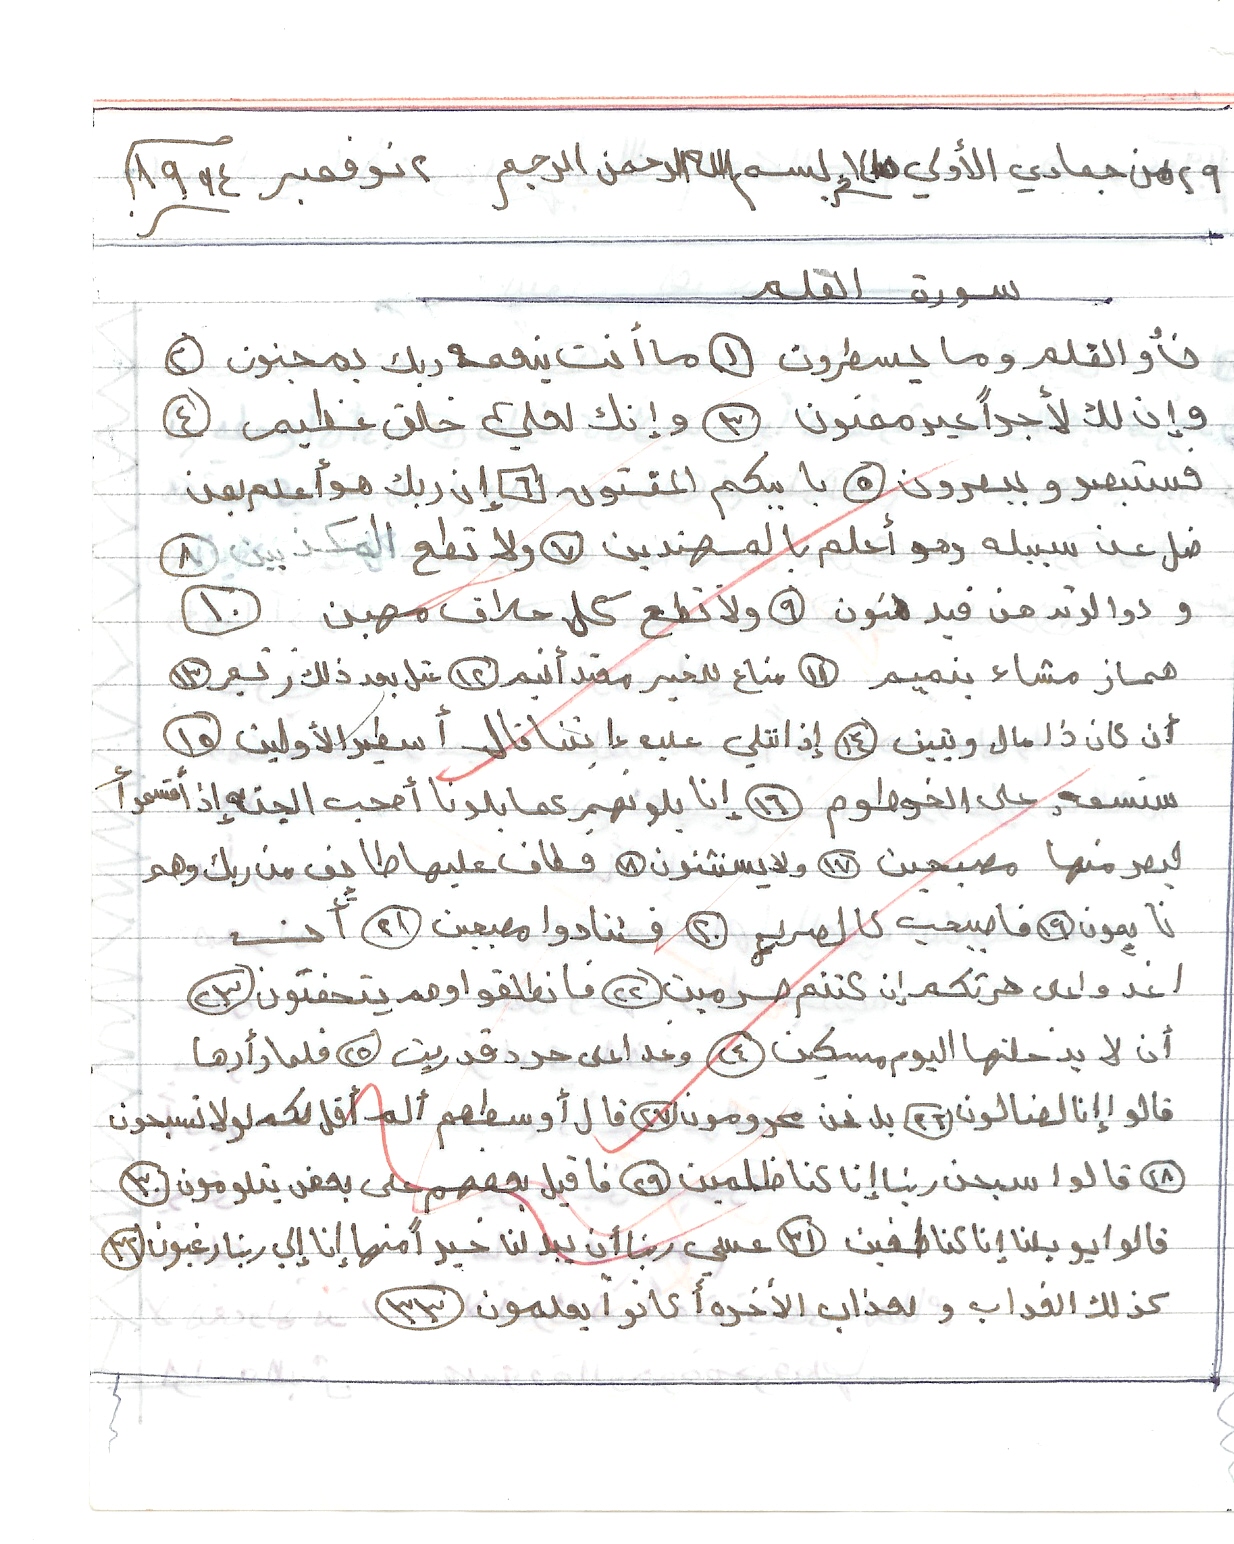 ٢٩ من جمادي الأولي ١٤١٥ بسم الله الرحمن الرحيم ٢ نوفمبر ١٩٩٤
سورة القلم
ن والقلم وما يسطرون ١ ما أنت بنعمة ربك بمجنون ٢
وإن لك لأجراً غير ممنون ٣ وإنك لعلي خلق عظيم ٤
فستبصر ويبصرون ٥ باييكم المفتون ٦ إن ربك هو أعلم بمن
ضل عن سبيله وهو أعلم بالمهتدين ٧ ولا تطع المكذبين ٨
ودوا لوتدهن فيدهنون ٩ ولا تطع كل حلاف مهين ١٠
هماز مشاء بنميم ١١ مناع للخير معتد أثيم ١٢ عتل بعد ذلك زنيم ١٣
أن كان ذا مال وبنين ١٤ إذا تتلي عليه ءايتنا قال أسطير الأولين ١٥
سنسمه على الخرطوم ١٦ إنا بلونهم كما بلونا أصحب الجنة إذ أقسموا
ليصرمنها مصبحين ١٧ ولا يستثنون ١٨ فطاف عليها طايف من ربك وهم
نايمون ١٩ فاصبحت كالصريم ٢٠ فتنادوا مصبحين ٢١ أن
اغدوا على حرثكم إن كنتم صرمين ٢٢ فانطلقوا وهم يتخفتون ٢٣
أن لا يدخلنها اليوم مسكين ٢٤ وغدا على حرد قدرين ٢٥ فلما رأوها
قالوا إنا لضالون ٢٦ بل نحن محرومون ٢٧ قال أوسطهم ألم أقل لكم لولا تسبحون
٢٨ قالوا سبحن ربنا إنا كنا ظلمين ٢٩ فاقبل بعضهم على بعض يتلومون ٣٠
قالوا يويلنا إنا كنا طغين ٣١ عسي ربنا أن يبدلنا خيراً منها إنا إلي ربنا رغبون ٣٢
كذلك العذاب ولعذاب الأخره أ كانوا يعلمون ٣٣